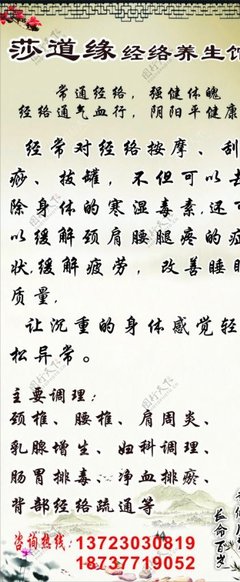 莎道缘 经络养生馆
常通经络，强健体魄
经络通气血行，阴阳平健康
经常对经络按摩、刮
痧、拔罐，不但可以去
除身体的寒湿毒素，还可
以缓解颈肩腰腿疼的症
状，缓解疲劳，改善睡眠
质量，
让沉重的身体感觉轻
松异常。
主要调理：
颈椎、腰椎、肩周炎、
乳腺增生、妇科调理、
肠胃排毒、净血排瘀、
背部经络疏通等
咨询热线：13723030819
18737719052
长命百岁